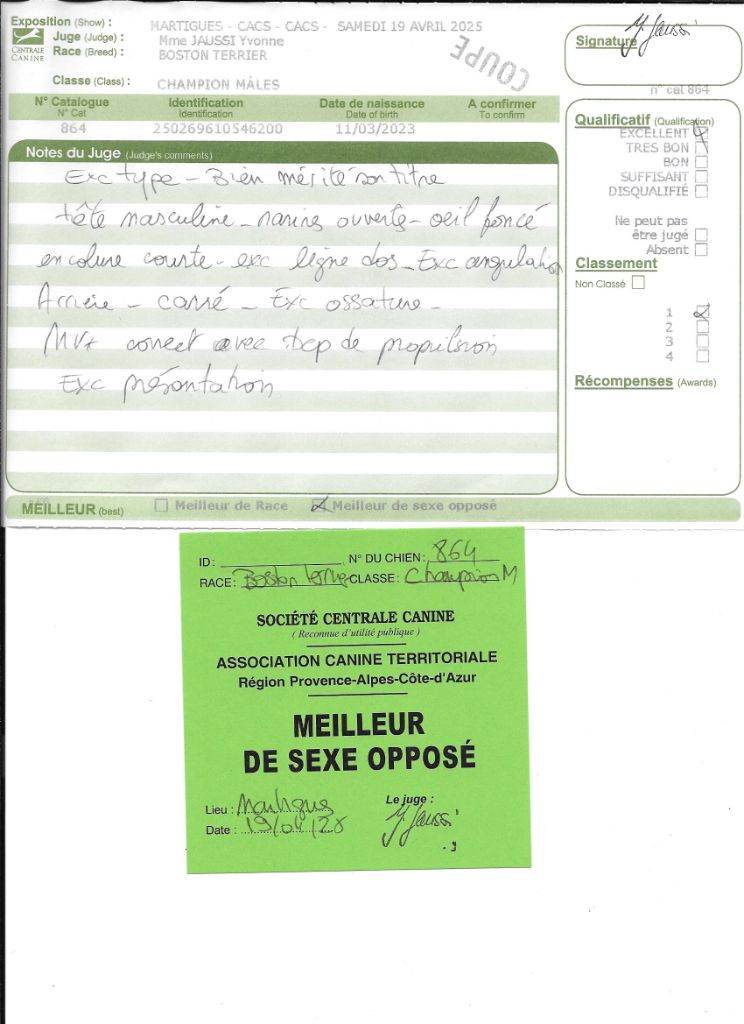 Exposition (Show) : MARTIGUES - CACS - CACS - SAMEDI 19 AVRIL 2025
CENTRALE CANINE
Juge (Judge) : Mme JAUSSI Yvonne
Race (Breed) : BOSTON TERRIER
Classe (Class) : CHAMPION MÂLES
COUPE
Signature
Y. Jaussi
n° cat 864
N° Catalogue Identification Date de naissance A confirmer
N° Cat Identification Date of birth To confirm
864 250269610546200 11/03/2023
Notes du Juge (Judge's comments)
Exc type - Bien mérité son titre
tête masculine - narine ouverte - oeil foncé
encolure courte - exc ligne dos - Exc angulation
Arrière - carré - Exc ossature -
MVt correct avec bcp de propulsion
Exc présentation
Qualificatif (Qualification)
EXCELLENT
TRES BON
BON
SUFFISANT
DISQUALIFIÉ
Ne peut pas
être jugé
Absent
Classement
Non Classé
1
2
3
4
Récompenses (Awards)
MEILLEUR (best) Meilleur de Race Meilleur de sexe opposé
ID: N° DU CHIEN: 864
RACE: Boston Terrier CLASSE: Champion M
SOCIÉTÉ CENTRALE CANINE
( Reconnue d'utilité publique )
ASSOCIATION CANINE TERRITORIALE
Région Provence-Alpes-Côte-d'Azur
MEILLEUR
DE SEXE OPPOSÉ
Lieu : Martigues
Le juge :
Date : 19/04/25
Y. Jaussi